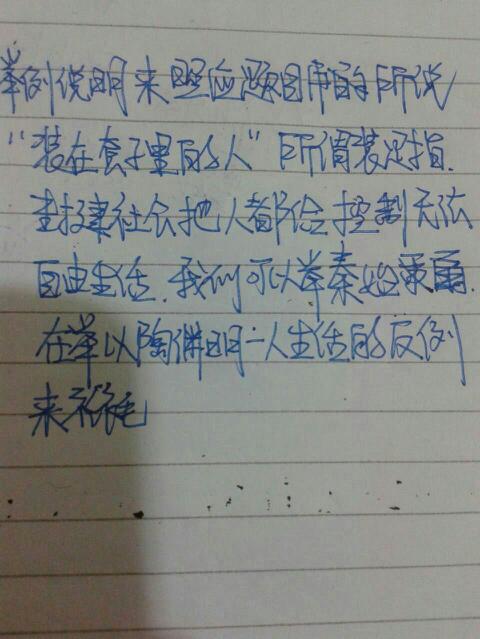 举例说明来照应题目中的所说
“装在套子里的人”所谓装是指.
封建社会把人都给控制无法
自由生活.我们可以举秦始皇
在举以陶渊明一人生活的反例
来